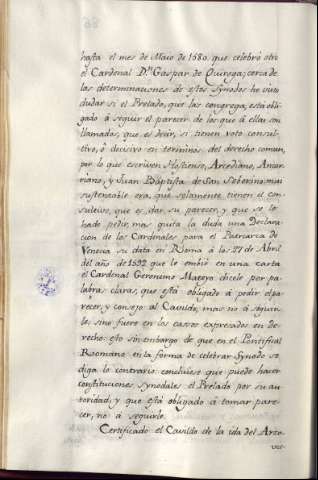 hasta el mes de Maio de 1580. que celebró otro
el Cardenal D.n Gaspar de Quiroga; cerca de
las determinaciones de estos Synodos he visto
dudar si el Prelado, que las congrega, está obli-
gado á seguir el parecer de los que á ellas son
llamados, que es decir, si tienen voto consul-
tivo, ó decisivo en terminos del derecho comun,
por lo que escriven Hostiense, Arcediano,
y Juan Baptista de San Soberino; mui
sustentable era, que solamente tienen el con-
sultivo, que es, dar su parecer, y que se le
ha de pedir, mas quita la duda una Declara-
cion de los Cardenales para el Patriarca de
Venecia su data en Roma á los 27 de Abril
del año de 1592 que le embió en una carta
el Cardenal Geronimo Mateyo dicele por pa-
labras claras, que está obligado á pedir el pa-
recer, y consejo al Cavildo, mas no á seguir-
le, sino fuere en los casos expresados en de-
recho: esto sin embargo de que en el Pontifical
Romano en la forma de celebrar Synodo se
diga lo contrario: concluiese que puede hacer
constituciones synodales el Prelado por su au-
toridad, y que está obligado á tomar pare-
cer, no á seguirle.
Certificado el Cavildo de la ida del Arzo-